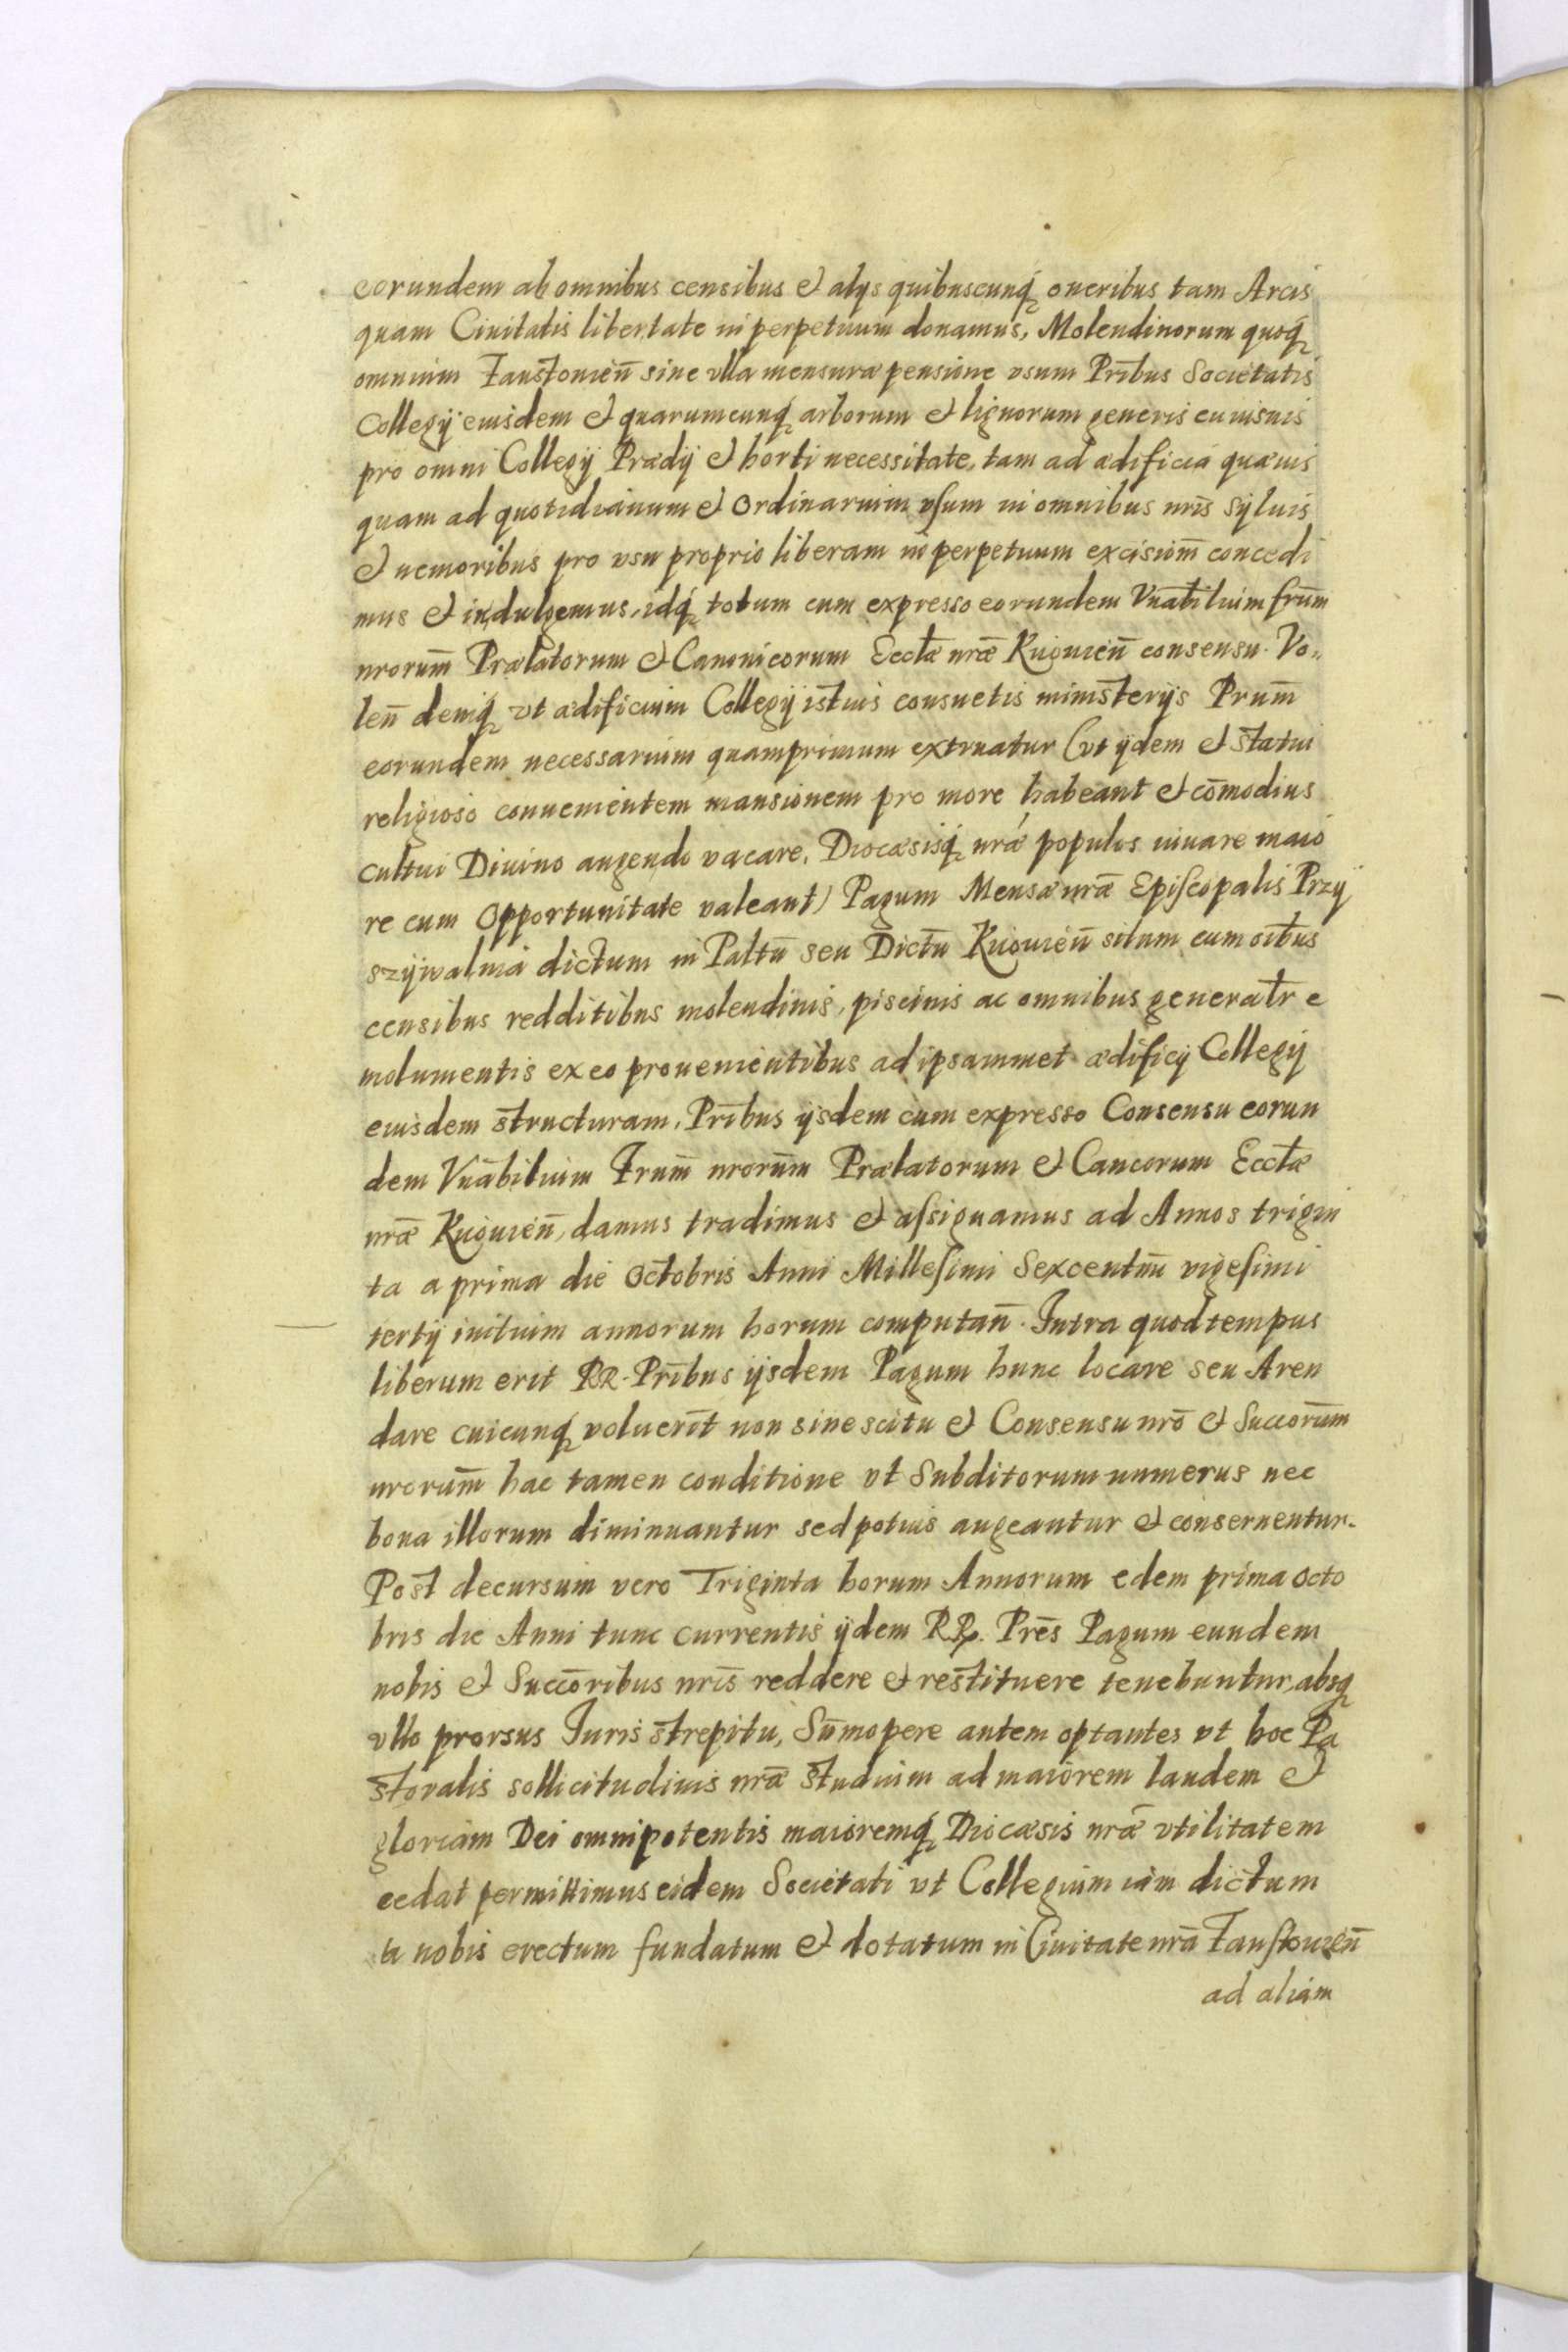 eorundem ab omnibus censibus et alys quibuscunq́ oneribus tam Arcis
quam Ciuitatis libertate in perpetuum donamus, Molendinorum quoq́
omnium Faustouień sine vlla mensuræ pensione vsum Pribus Societatis
Collegÿ eiusdem et quarumcunq́ arborum et lignorum generis cuiusuis
pro omni Collegÿ Prædÿ et horti necessitate, tam ad ædificia quæuis
quam ad quotidianum et Ordinarium vſum in omnibus nris̄ syluis
et nemoribus pro vsu proprio liberam in perpetuum excisiom̄ concedi
mus et indulgemus, idq́ totum cum expresso eorundem Vnabilium frum̄
nrorum̄ Prælatorum et Canonicorum Ecctæ nrǣ Kuiouien̄ consensu. Vo„
len̄ deniq́ vt ædificium Collegÿ istius consuetis ministerÿs Prum̄
eorundem necessarium quamprimum extruatur (vt ÿdem et statui
religioso conuenientem mansionem pro more habeant et com̄odius
cultui Diuino augendo vacare, Diocæsisq́ nræ populos iuuare maio
re cum Opportunitate valeant) Pagum Mensæ nrǣ Epiſcopalis Przÿ
szÿwalma dictum in Paltū seu Dictū Kuiouien̄ situm cum oib̄us
censibus redditibus molendinis, piscinis ac omnibus generatr e
molumentis ex eo prouenientibus ad ipsammet ædificÿ Collegÿ
eiusdem structuram, Prib̄us ÿsdem cum expresso Consensu eorun
dem Vnābilium Frum̄ nrorum̄ Prælatorum et Cancorum Ecctæ
nrǣ Kuiouien̄, damus tradimus et aſsignamus ad Annos trigin
ta a prima die Octobris Anni Milleſimi Sexcentmī vigeſimi
tertÿ initium annorum horum computan̄. Intra quod tempus
liberum erit RR. Prib̄us ÿsdem Pagum hunc locare seu Aren
dare cuicunq́ voluerit̄ non sine scitu et Consensu nrō et Succorum̄
nrorum̄ hac tamen conditione vt Subditorum numerus nec
bona illorum diminuantur sed potius augeantur et conseruentur.
Post decursum vero Triginta horum Annorum edem prima Octo
bris die Anni tunc currentis ÿdem RR. Pres̄ Pagum eundem
nobis et Succorībus nris̄ reddere et restituere tenebuntur, absq́
vllo prorsus Iuris strepitu, Sum̄opere autem optantes vt hoc Pa
storalis sollicitudinis nrǣ studium ad maiorem laudem et
gloriam Dei omnipotentis maioremq́ Diocæsis nrǣ vtilitatem
cedat permittimus eidem Societati vt Collegium iam dictum
a nobis erectum fundatum et dotatum in Ciuitate nrā Fauſtouien̄
ad aliam